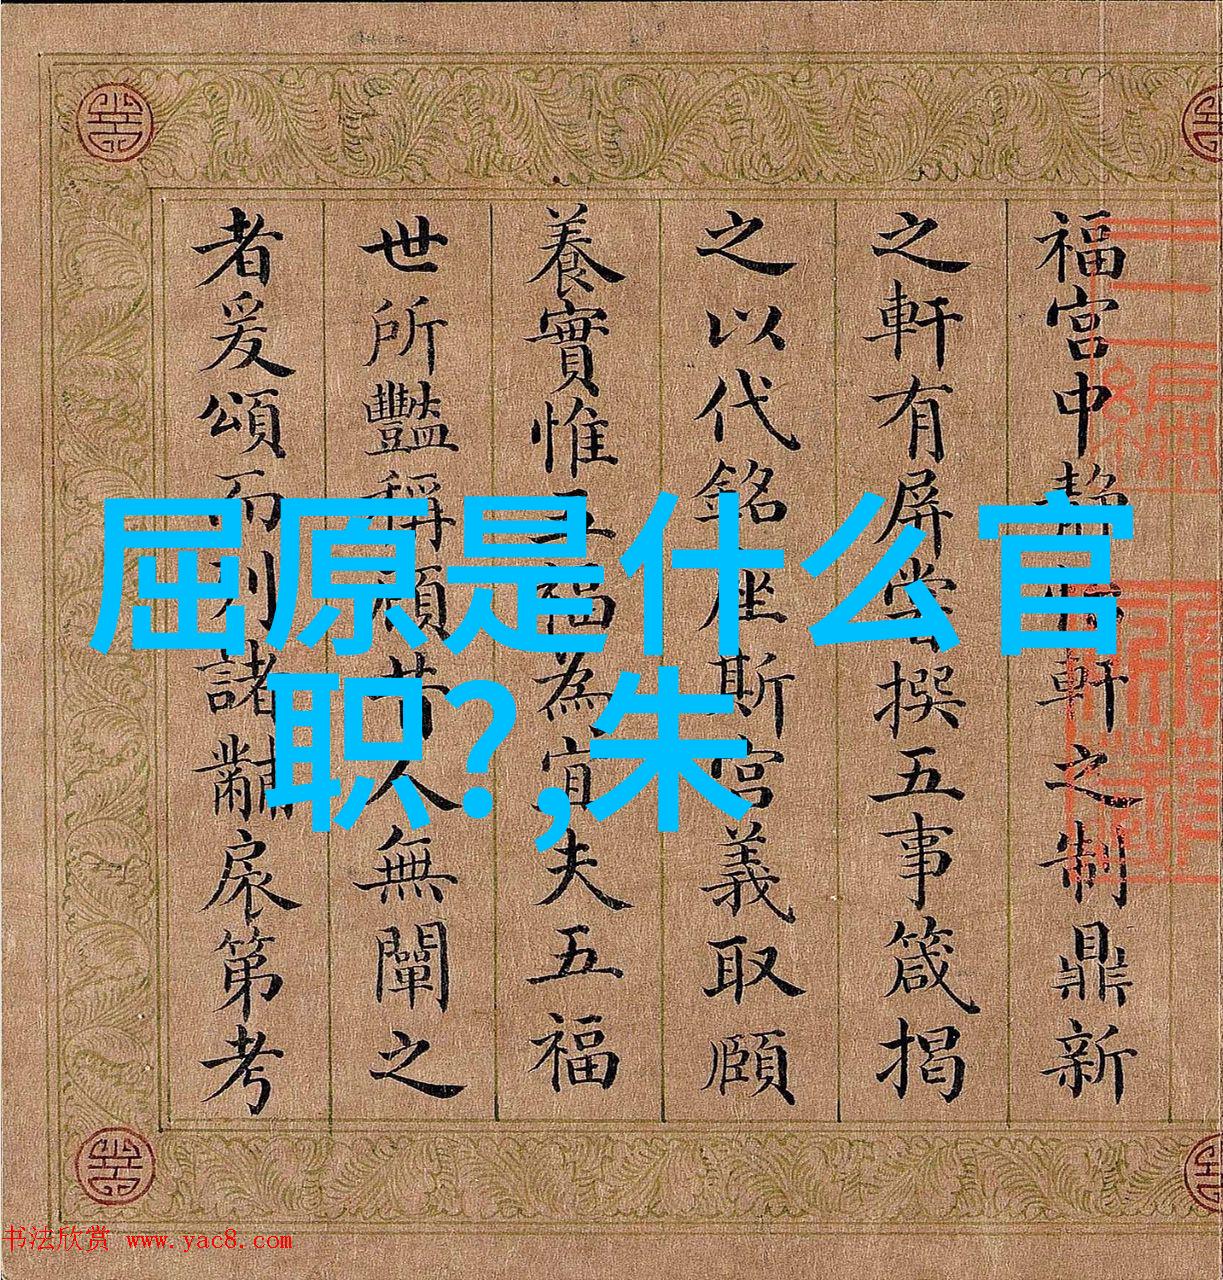 屈原是什么官
职?,朱
福宫中静怡軒之制鼎新
之軒有屏堂撰五事箴揭
之以代銘座斯宫義取頤
養實惟五福為宜夫五福
世所豔稱顧昔人無闡之
者爰頌而列諸黼扆第考
书法欣赏 www.yac8.com